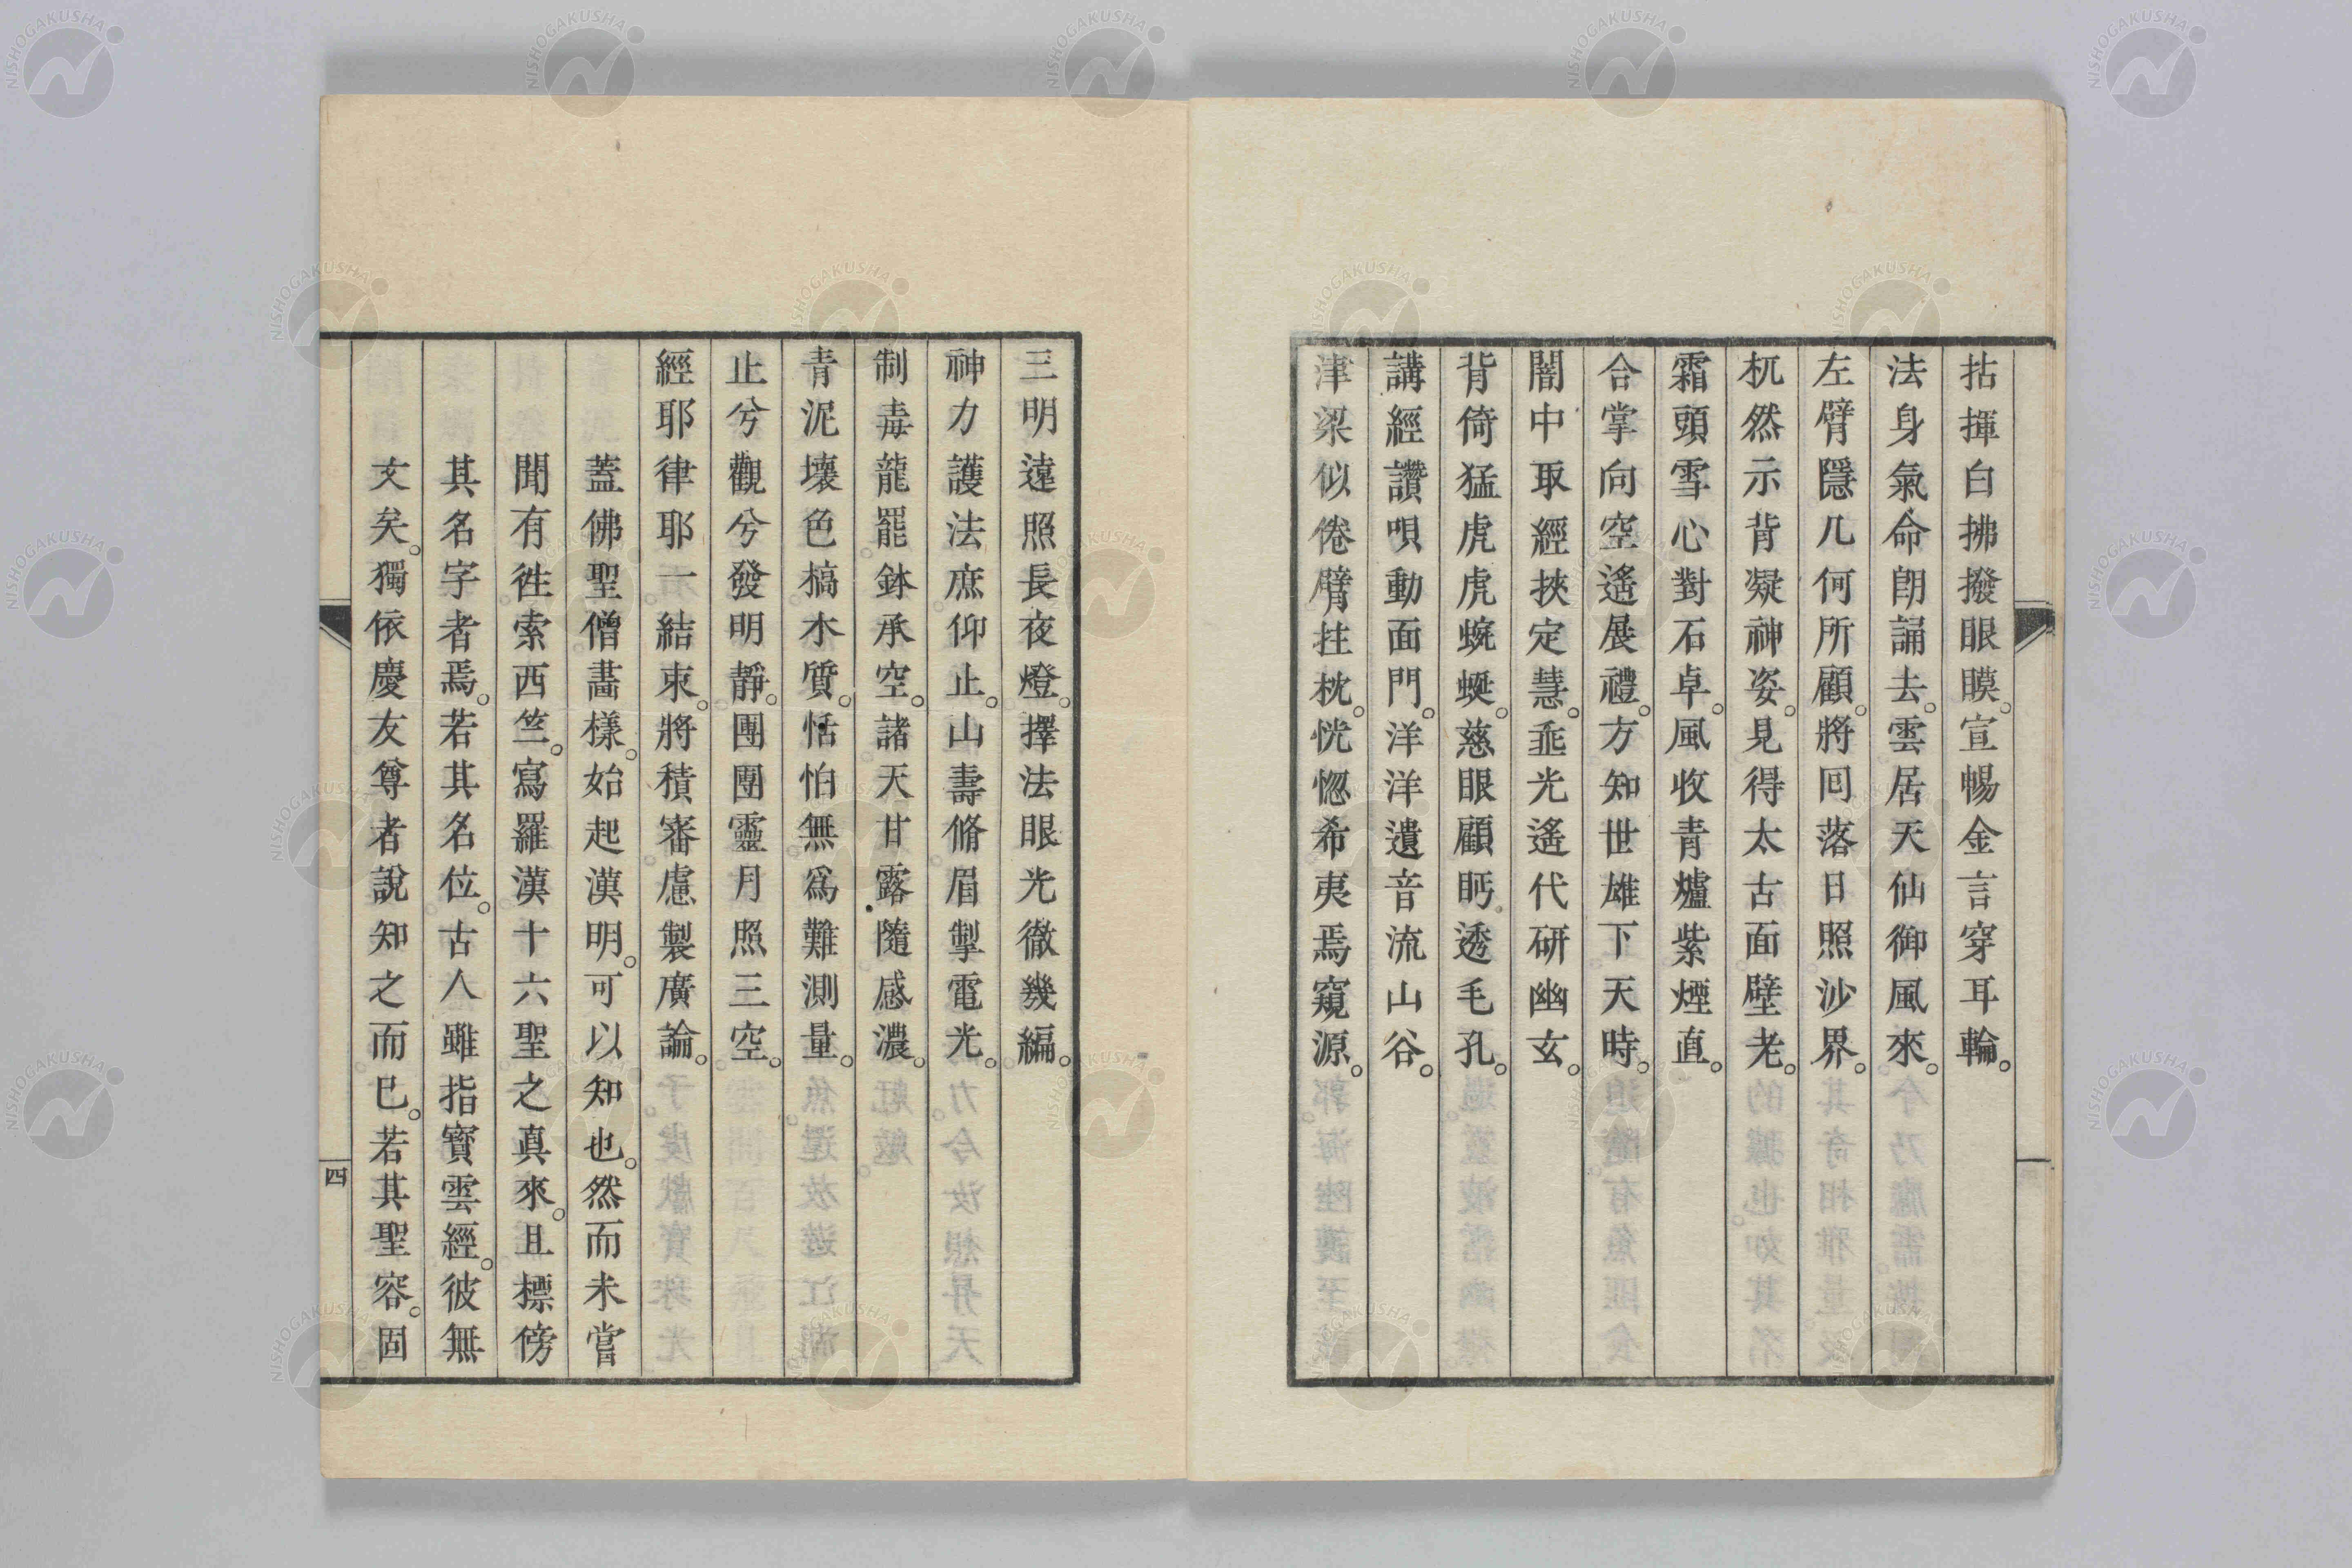 拈揮白拂撥眼膜。宣暢金言穿耳輪。
法身氣命朗誦去。雲居天仙御風來。
左臂隱几何所顧。將囘落日照沙界。
杌然示背凝神姿。見得太古面壁老。
霜頭雪心對石卓。風收青爐紫煙直。
合掌向空遙展禮。方知世雄下天時。
闇中取經挾定慧。乖光遙代研幽玄。
背倚猛虎虎蜿蜒。慈眼顧眄透毛孔。
講經讚唄動面門。洋洋遺音流山谷。
津梁似倦臂拄枕。恍惚希夷焉窺源。
三明遠照長夜燈。擇法眼光徹幾編。
神力護法庶仰止。山壽脩眉掣電光。
制毒龍罷鉢承空。諸天甘露隨感濃。
青泥壞色槁木質。恬怕無爲難測量。
止兮觀兮發明靜。團團靈月照三空。
經耶律耶一結束。將積審慮製廣論。
蓋佛聖僧畵樣。始起漢明。可以知也。然而未嘗
聞有徃索西竺。寫羅漢十六聖之真來。且標傍
其名字者焉。若其名位。古人雖指寶雲經。彼無
文矣。獨依慶友尊者說知之而巳。若其聖容。固
四
NISHOGAKUSHA